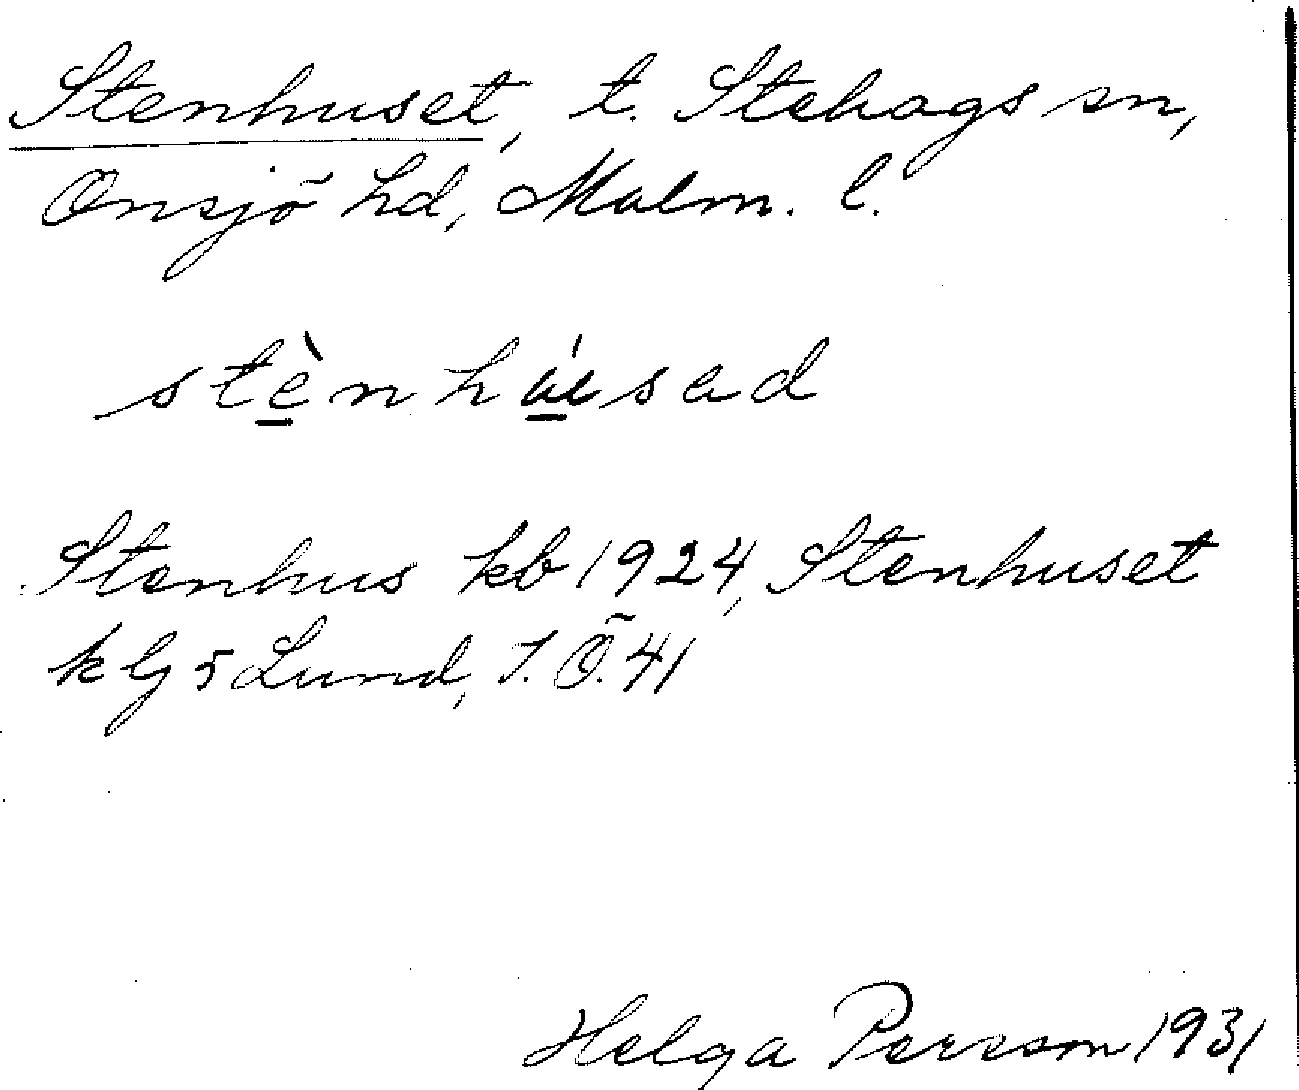 Stenhuset, t. Stehags sn,
Onsjö hd, Malm. l.
stènhúsad
Stenhus kb 1924, Stenhuset
k Bg 5 Lund, 1. Ö. 41
Helga Persson 1931